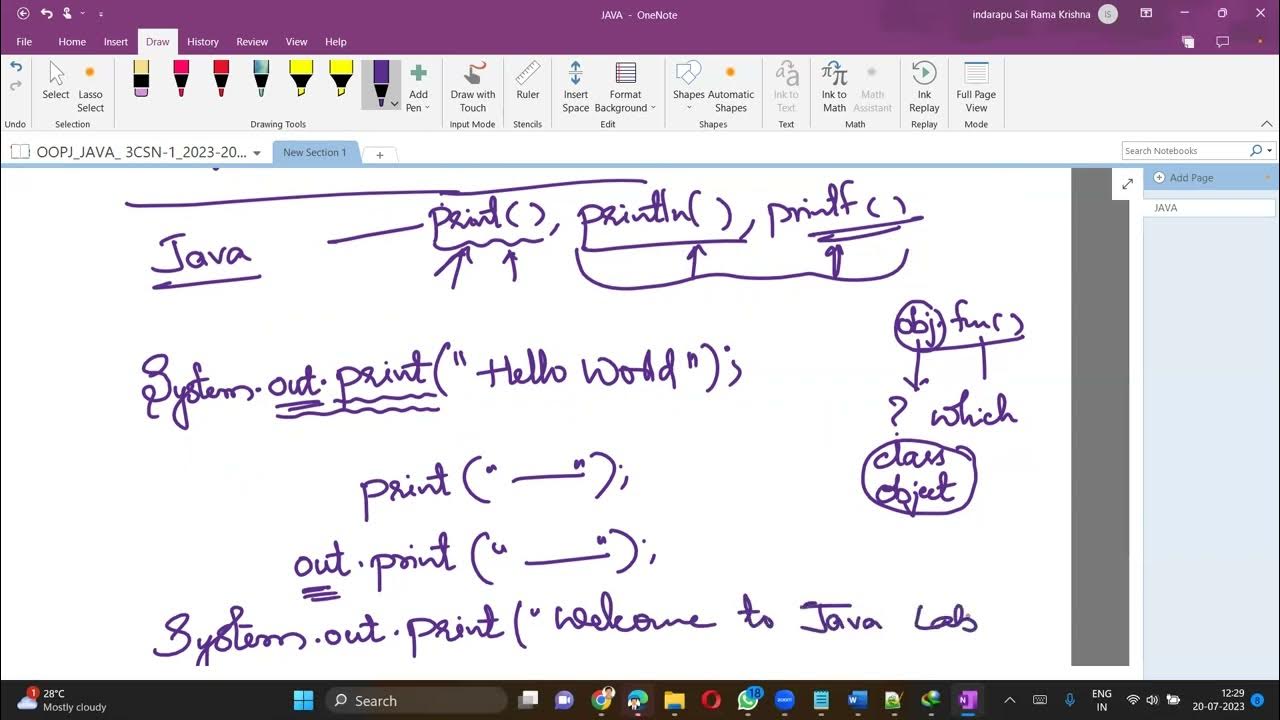 JAVA - OneNote
indarapu Sai Rama Krishna IS
File Home Insert Draw History Review View Help
Select Lasso Select
Add Pen
Draw with Touch
Ruler
Insert Space
Format Background
Shapes
Automatic Shapes
Ink to Text
Ink to Math
Math Assistant
Ink Replay
Full Page View
Undo Selection Drawing Tools Input Mode Stencils Edit Shapes Text Math Replay Mode
OOPJ_JAVA_ 3CSN-1_2023-20... New Section 1 Search Notebooks
Add Page
JAVA
print(), println(), printf()
Java
obj.fun()
System.out.print("Hello World");
? which
class
object
print("——");
out.print("——");
System.out.print("Welcome to Java Lab
28°C
Mostly cloudy
1
Search
18
zoom
ENG
IN
12:29
20-07-2023